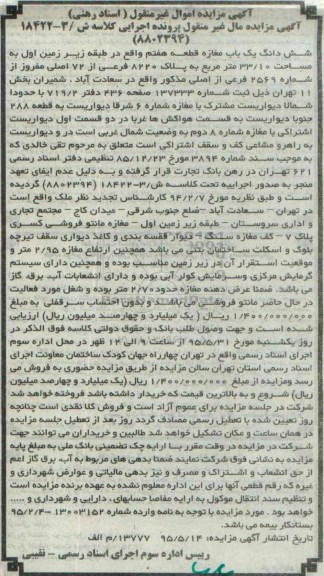 آگهی مزایده اموال غیرمنقول ( اسناد رهنی)
آگهی مزایده مال غیر منقول پرونده اجرایی کلاسه ش /۳-۱۸۴۲۲
(۸۸۰۲۳۹۴)
شش دانگ یک باب مغازه قطعه هفتم واقع در طبقه زیر زمین اول به
مساحت ۳۳/۱۰ متر مربع به پلاک ۸۲۲۰ فرعی از ۷۲ اصلی مفروز از
شماره ۲۵۶۹ فرعی از اصلی مذکور واقع در سعادت آباد . شمیران بخش
۱۱ تهران ذیل ثبت شماره ۱۳۷۳۳۳ صفحه ۴۳۶ دفتر ۷۱۹/۲ با حدود:
شمالا دیواریست مشترک با مغازه شماره ۶ شرقا دیواریست به قطعه ۲۸۸
جنوبا دیواریست به قسمت هواکش ها غربا در دو قسمت اول دیواریست
اشتراکی با مغازه شماره ۸ دوم به وضعیت شمال غربی است در و دیواریست
به راهرو مشاعی کف و سقف اشتراکی است متعلق به مرحوم تقی خالدی که
به موجب سند شماره ۳۸۹۴ مورخ ۸۵/۱۲/۲۳ تنظیمی دفتر اسناد رسمی
۶۲۱ تهران در رهن بانک تجارت قرار گرفته و به دلیل عدم ایفای تعهد
منجر به صدور اجراییه تحت کلاسه ش/۳-۱۸۴۲۲ (۸۸۰۲۳۹۴) گردیده
است و طبق نظریه مورخ ۹۴/۲/۷ کارشناس تجدید نظر ملک واقع است
در تهران – سعادت آباد –ضلع جنوب شرقی – میدان کاج – مجتمع تجاری
و اداری سروستان – طبقه زیر زمین اول – مغازه مانتو فروشی کسری
پلاک ۷ – کف مغازه سنگ – دیوار قفسه بندی و کاغذ دیواری سقف تیرچه
بلوک و اسکلت ساختمان بتنی می باشد همچنین ارتفاع مغازه ۲/۹۵ متر و
موقعیت استقرار آن در زیر زمین مناسب بوده و همچنین دارای سیستم
گرمایش مرکزی وسرمایش کولر آبی بوده و دارای انشعابات آب. برق. گاز
می باشد. ضمنا عرض دهنه مغازه حدود ۲/۷۰ متر بوده و شغل مورد فعالیت
در حال حاضر مانتو فروشی می باشد. و بدون احتساب سرقفلی به مبلغ
۱/۴۰۰/۰۰۰/۰۰۰ ریال ( یک میلیارد و چهارصد میلیون ریال) ارزیابی
شده است و جهت وصول طلب بانک و حقوق دولتی کلاسه فوق الذکر در
روز یکشنبه مورخ ۹۵/۵/۳۱ از ساعت ۹ الی ۱۲ ظهر در محل اداره سوم
اجرای اسناد رسمی واقع در تهران چهارراه جهان کودک ساختمان معاونت اجرای
اسناد رسمی استان تهران سالن مزایده از طریق مزایده حضوری به فروش می
رسد ومزایده از مبلغ ۱/۴۰۰/۰۰۰/۰۰۰ ریال (یک میلیارد و چهارصد میلیون
ریال) شروع و به بالاترین قیمت که خریدار داشته باشد فروخته خواهد شد
شرکت در جلسه مزایده برای عموم آزاد است و فروش کلا نقدی است چنانچه
روز تعیین شده با تعطیل رسمی مصادف گردد روز بعد از تعطیل جلسه مزایده
در همان ساعت و مکان تشکیل خواهد شد طالبین و خریداران می توانند جهت
شرکت در مزایده در وقت مقرر با ارایه چک تضمینی بانک ملی به مبلغ پایه
مزایده به نشانی فوق شرکت نمایند ضمنا بدهی های مربوط به آب. برق. گاز اعم
از حق انشعاب و اشتراک و مصرف و نیز بدهی مالیاتی و عوارض شهرداری و
غیره که رقم قطعی آنها برای این اداره معلوم نشده به عهده برنده مزایده است
و تنظیم سند انتقال موکول به ارایه مفاصا حسابهای . دارایی و شهرداری و .....
خواهد بود . مورد مزایده با توجه به نامه وارده شماره ۱۳۰۰۳۱۵۲ – ۹۵/۲/۴
بستانکار بیمه می باشد.
تاریخ انتشار آگهی مزایده: ۹۵/۵/۱۴ ۱۳۷۷۷/م الف
رییس اداره سوم اجرای اسناد رسمی – نقیبی